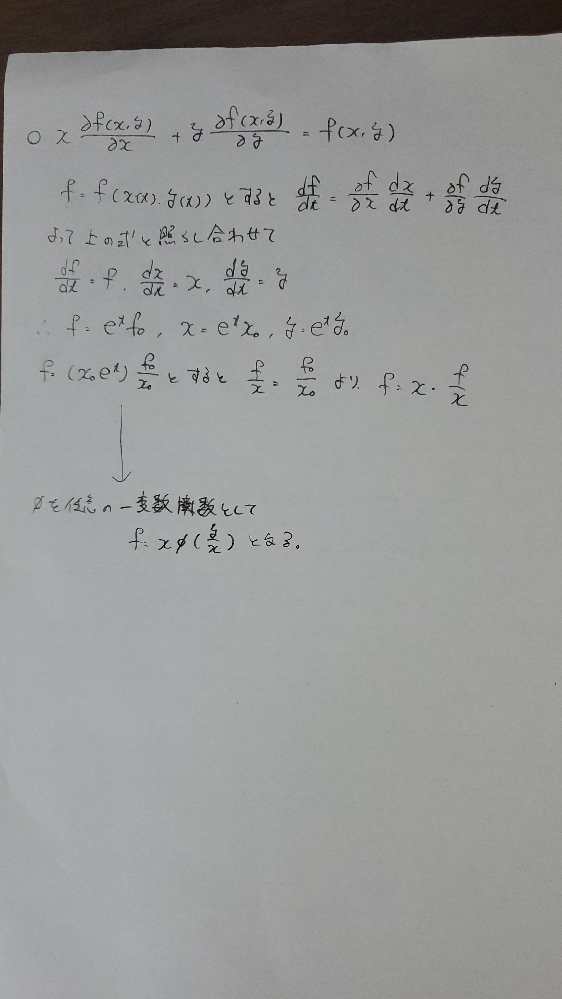 ○ x ∂f(x,y)/∂x + y ∂f(x,y)/∂y = f(x,y)
f = f(x(t), y(t)) とすると df/dt = ∂f/∂x dx/dt + ∂f/∂y dy/dt
よって上の式と照らし合わせて
df/dt = f, dx/dt = x, dy/dt = y
∴ f = e^t f₀, x = e^t x₀, y = e^t y₀
f = (x₀e^t) f₀/x₀ とすると f/x = f₀/x₀ より f = x · f/x
↓
φを任意の一変数関数として
f = xφ(y/x) となる。